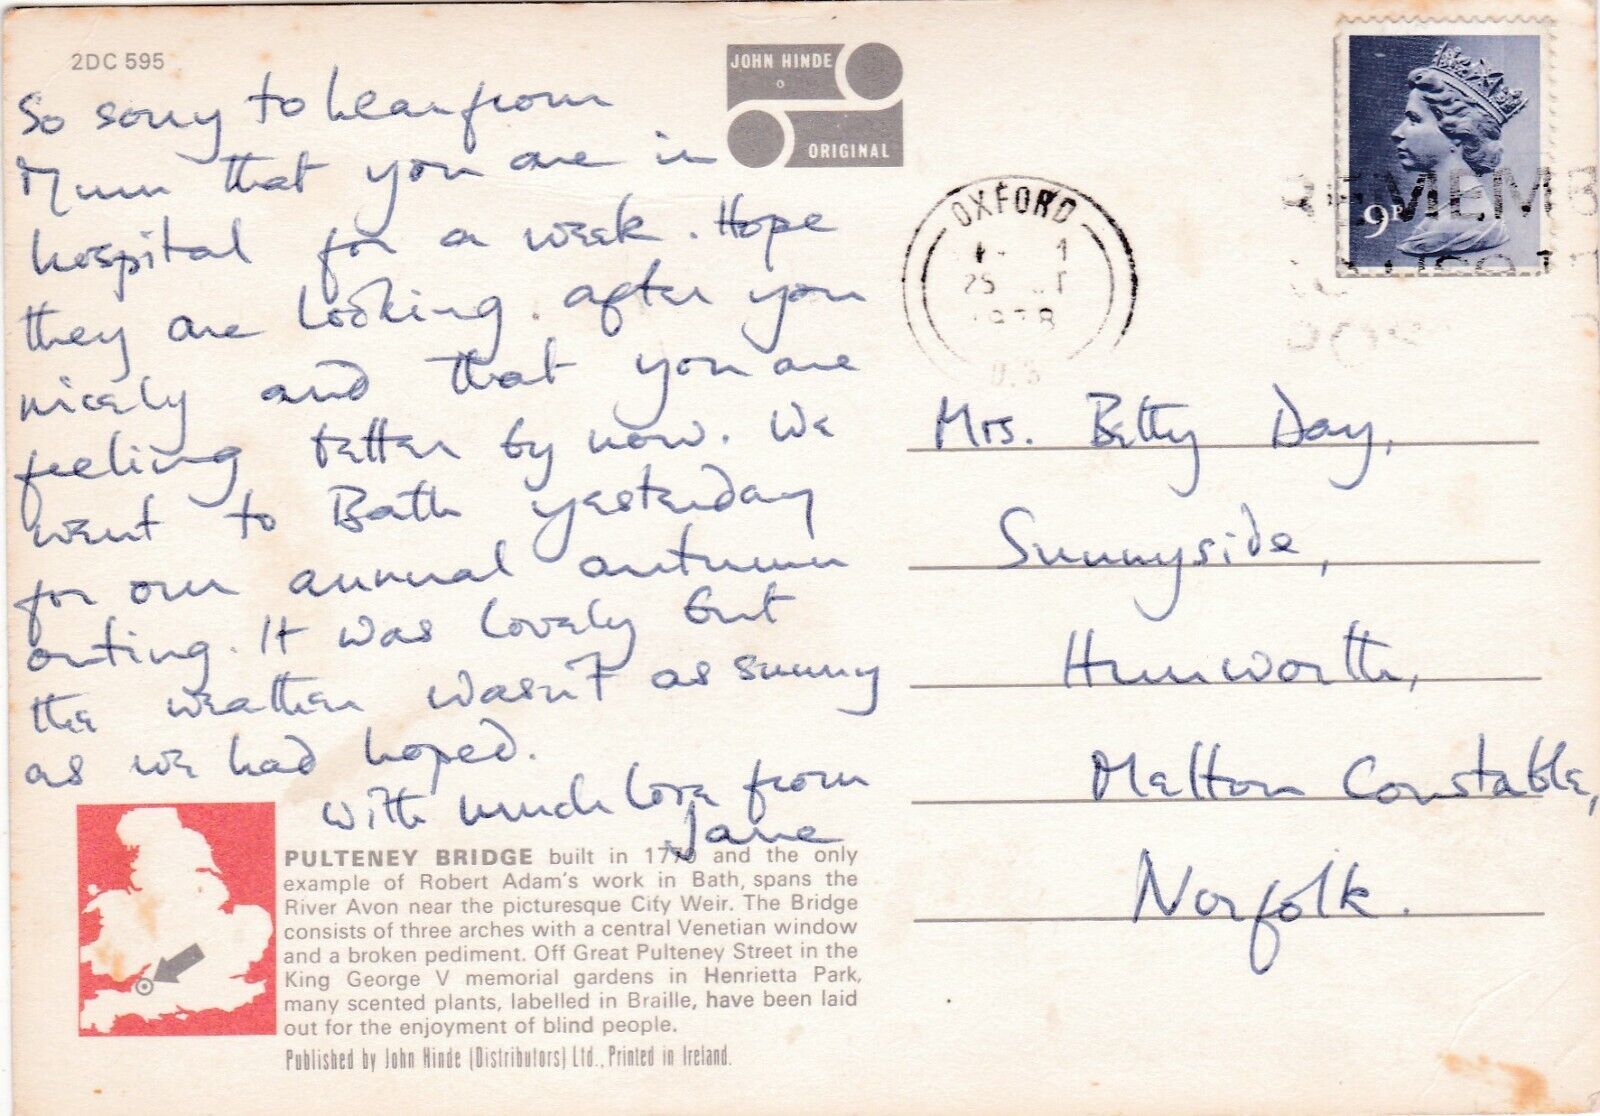 2DC 595
JOHN HINDE
ORIGINAL
So sorry to hear from
Mum that you are in
hospital for a week. Hope
they are looking after you
nicely and that you are
feeling better by now. We
went to Bath yesterday
for our annual autumn
outing. It was lovely but
the weather wasn't as sunny
as we had hoped.
With much love from
Jane
PULTENEY BRIDGE built in 1770 and the only
example of Robert Adam's work in Bath, spans the
River Avon near the picturesque City Weir. The Bridge
consists of three arches with a central Venetian window
and a broken pediment. Off Great Pulteney Street in the
King George V memorial gardens in Henrietta Park,
many scented plants, labelled in Braille, have been laid
out for the enjoyment of blind people.
Published by John Hinde (Distributors) Ltd., Printed in Ireland.
9P
OXFORD
1978
REMEMB
Mrs. Betty Day,
Sunnyside,
Hunworth,
Melton Constable,
Norfolk.